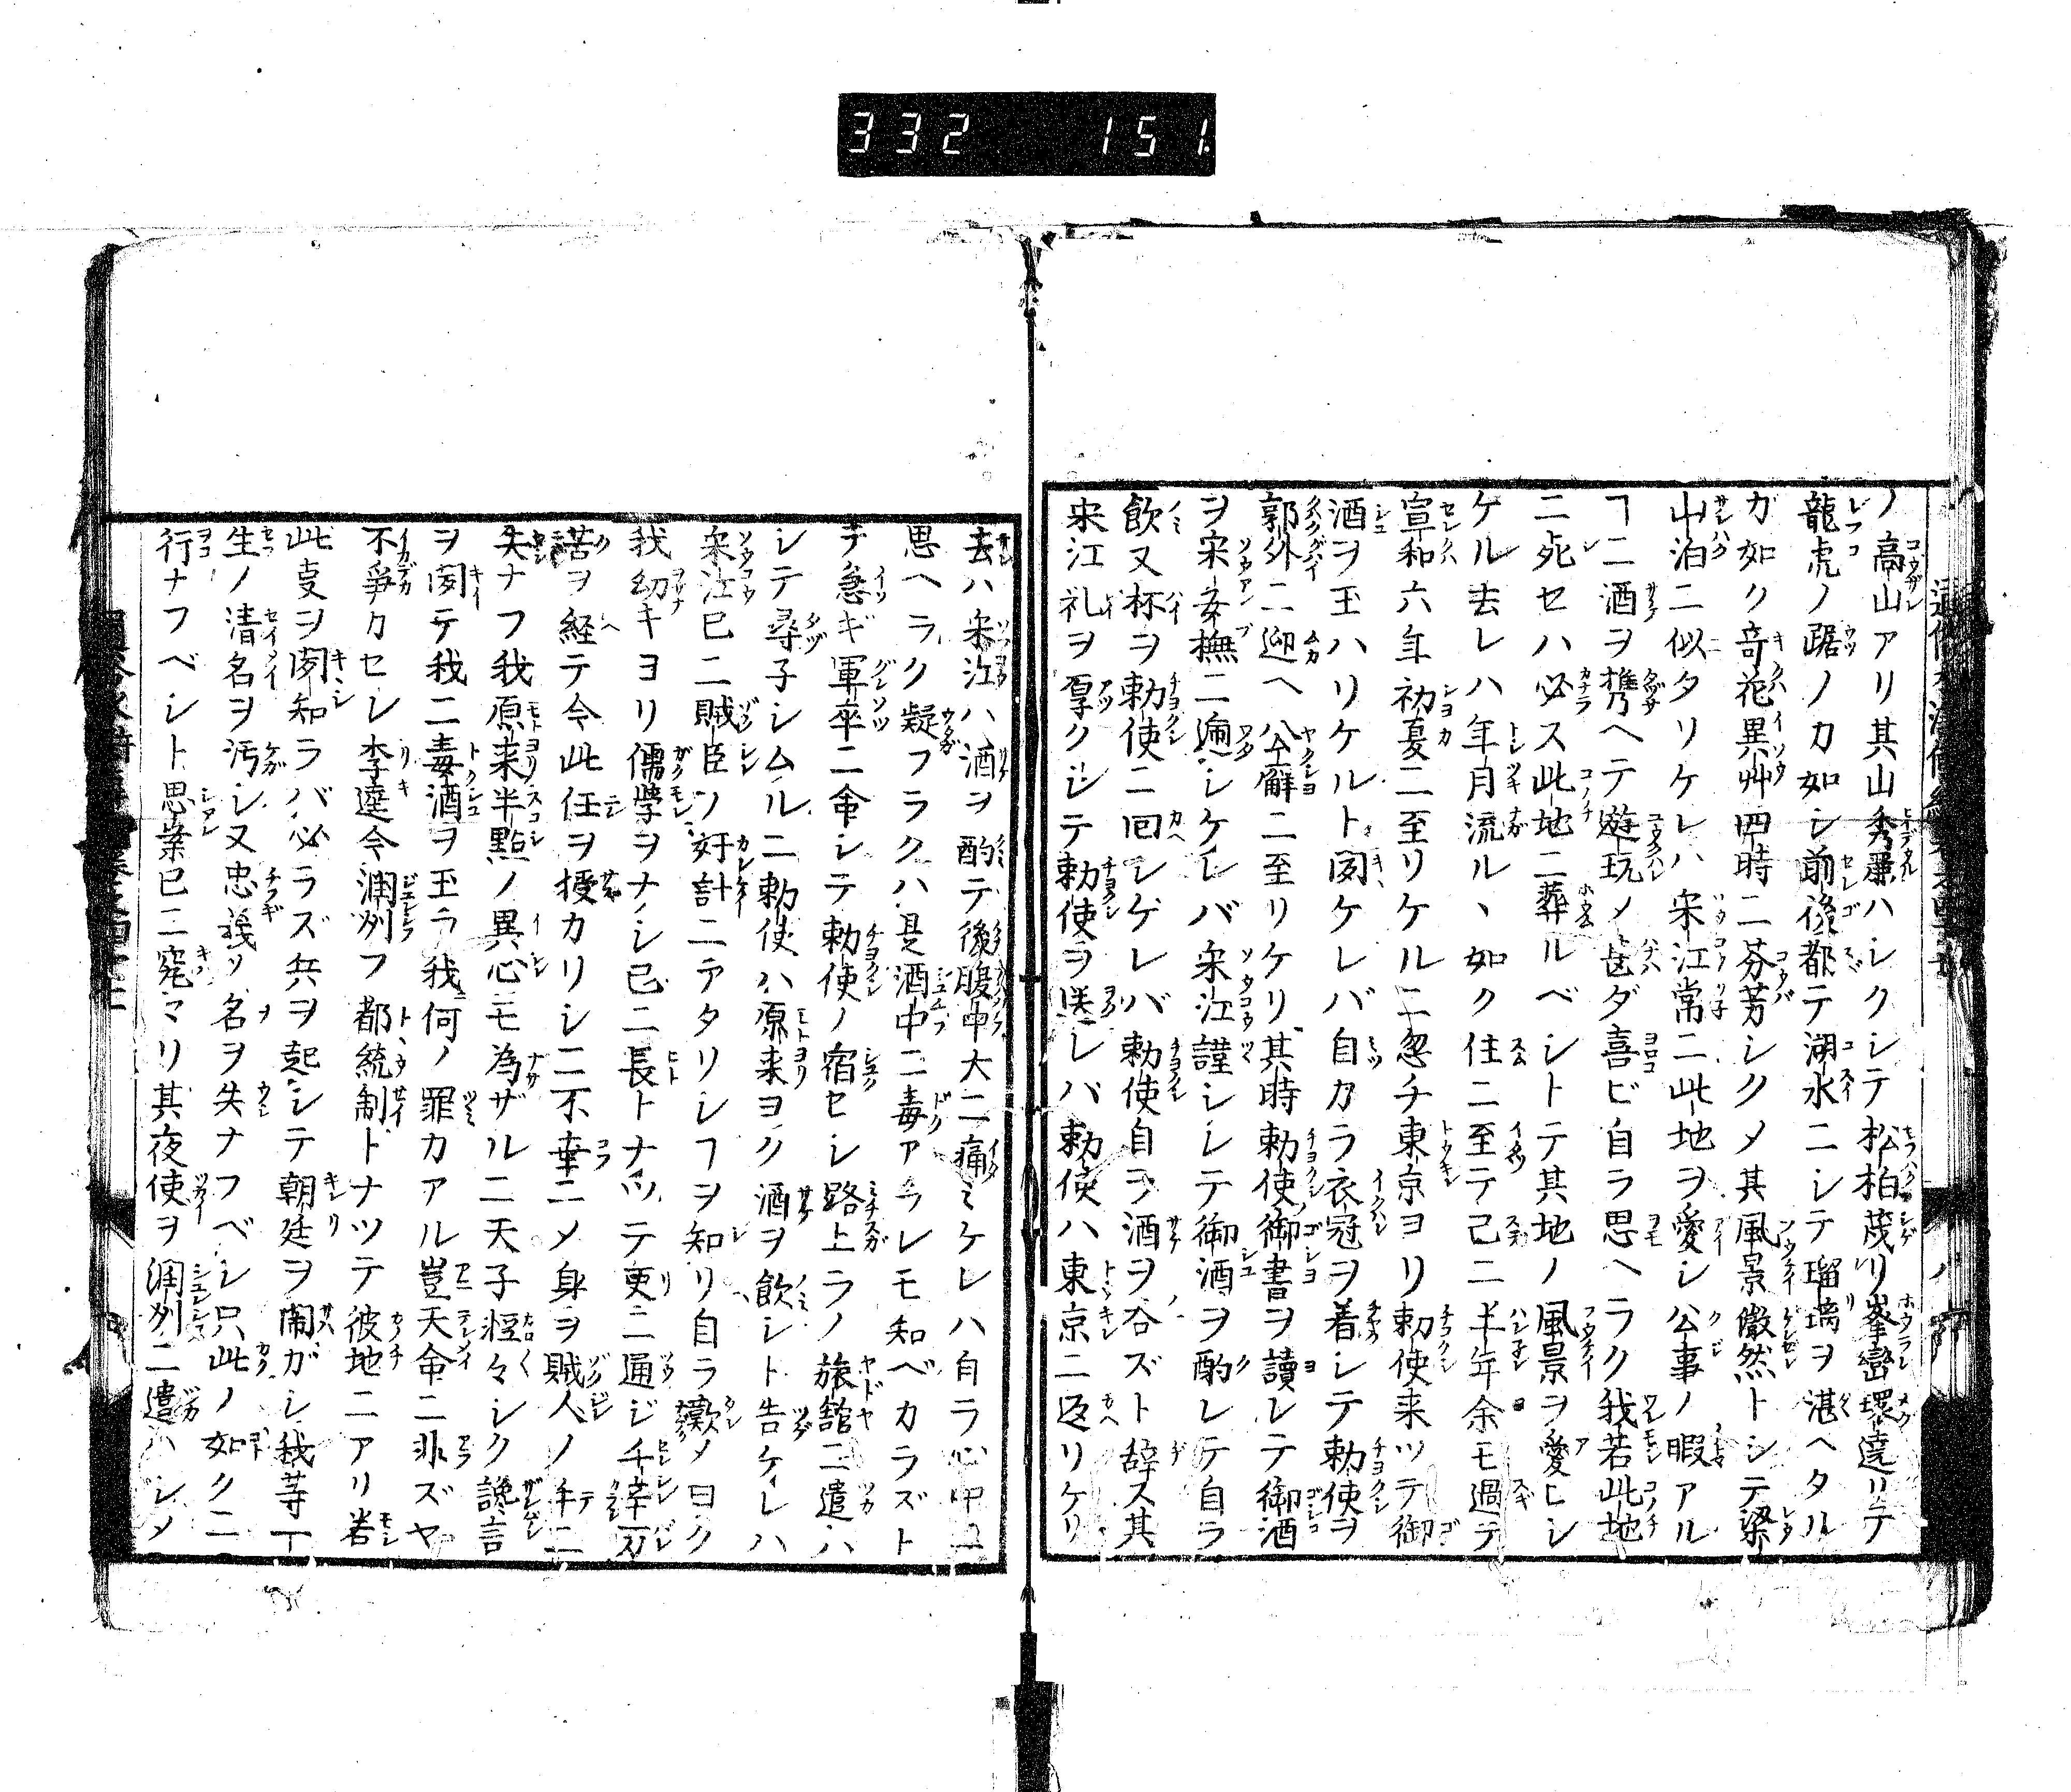 332 151
ノ高山アリ其山秀麗ハシクシテ松柏茂リ峯巒環遶リテ
龍虎ノ踞ノカ如シ前後都テ湖水ニシテ瑠璃ヲ湛ヘタル
カ如ク竒花異艸四時ニ芬芳シクメ其風景儼然トシテ梁
山泊ニ似タリケレハ宋江常ニ此地ヲ愛シ公事ノ暇アル
ヿニ酒ヲ携ヘテ遊玩メ甚ダ喜ビ自ラ思ヘラク我若此地
ニ死セハ必ス此地ニ葬ルベシトテ其地ノ風景ヲ愛シ
ケル去レハ年月流ルヽ如ク住ニ至テ己ニ半年余モ過テ
宣和六年初夏ニ至リケルニ忽チ東京ヨリ勅使来ツテ御
酒ヲ玉ハリケルト聞ケレバ自カラ衣冠ヲ着シテ勅使ヲ
郭外ニ迎ヘ公廨ニ至リケリ其時勅使御書ヲ讀レテ御酒
ヲ宋安撫ニ遍シケレバ宋江謹シレテ御酒ヲ酌レテ自ラ
飲又杯ヲ勅使ニ回シケレバ勅使自ヲ酒ヲ吞ズト辞ス其
宋江礼ヲ厚クシテ勅使ヲ送レバ勅使ハ東京ニ返リケリ
八
去ハ宋江ハ酒ヲ酌テ後腹中大ニ痛ミケレハ自ラ心中ニ
思ヘラク疑フラクハ是酒中ニ毒アラレモ知ベカラズト
テ急ギ軍卒ニ命シテ勅使ノ宿セシ路上ラノ旅舘ニ遣ハ
シテ尋子シムルニ勅使ハ原来ヨク酒ヲ飲シト告ケレハ
宋江已ニ賊臣ソ奸計ニアタリシヿヲ知リ自ラ歎メ曰ク
我幼キヨリ儒學ヲナシ已ニ長トナツテ吏ニ通ジ千辛万
苦ヲ経テ今此任ヲ授カリシニ不幸ニメ身ヲ賊人ノ手ニ
失ナフ我原来半點ノ異心モ為ザルニ天子軽々シク讒言
ヲ聞テ我ニ毒酒ヲ玉ラ我何ノ罪カアル豈天命ニ非ズヤ
不爭カセレ李逵今潤州フ都統制トナツテ彼地ニアリ若
此叓ヲ聞知ラバ必ラズ兵ヲ起シテ朝廷ヲ閙ガシ我等一
生ノ清名ヲ汚シ又忠義ソ名ヲ失ナフベシ只此ノ如クニ
行ナフベシト思案已ニ窕マリ其夜使ヲ潤州ニ遣ハシメ